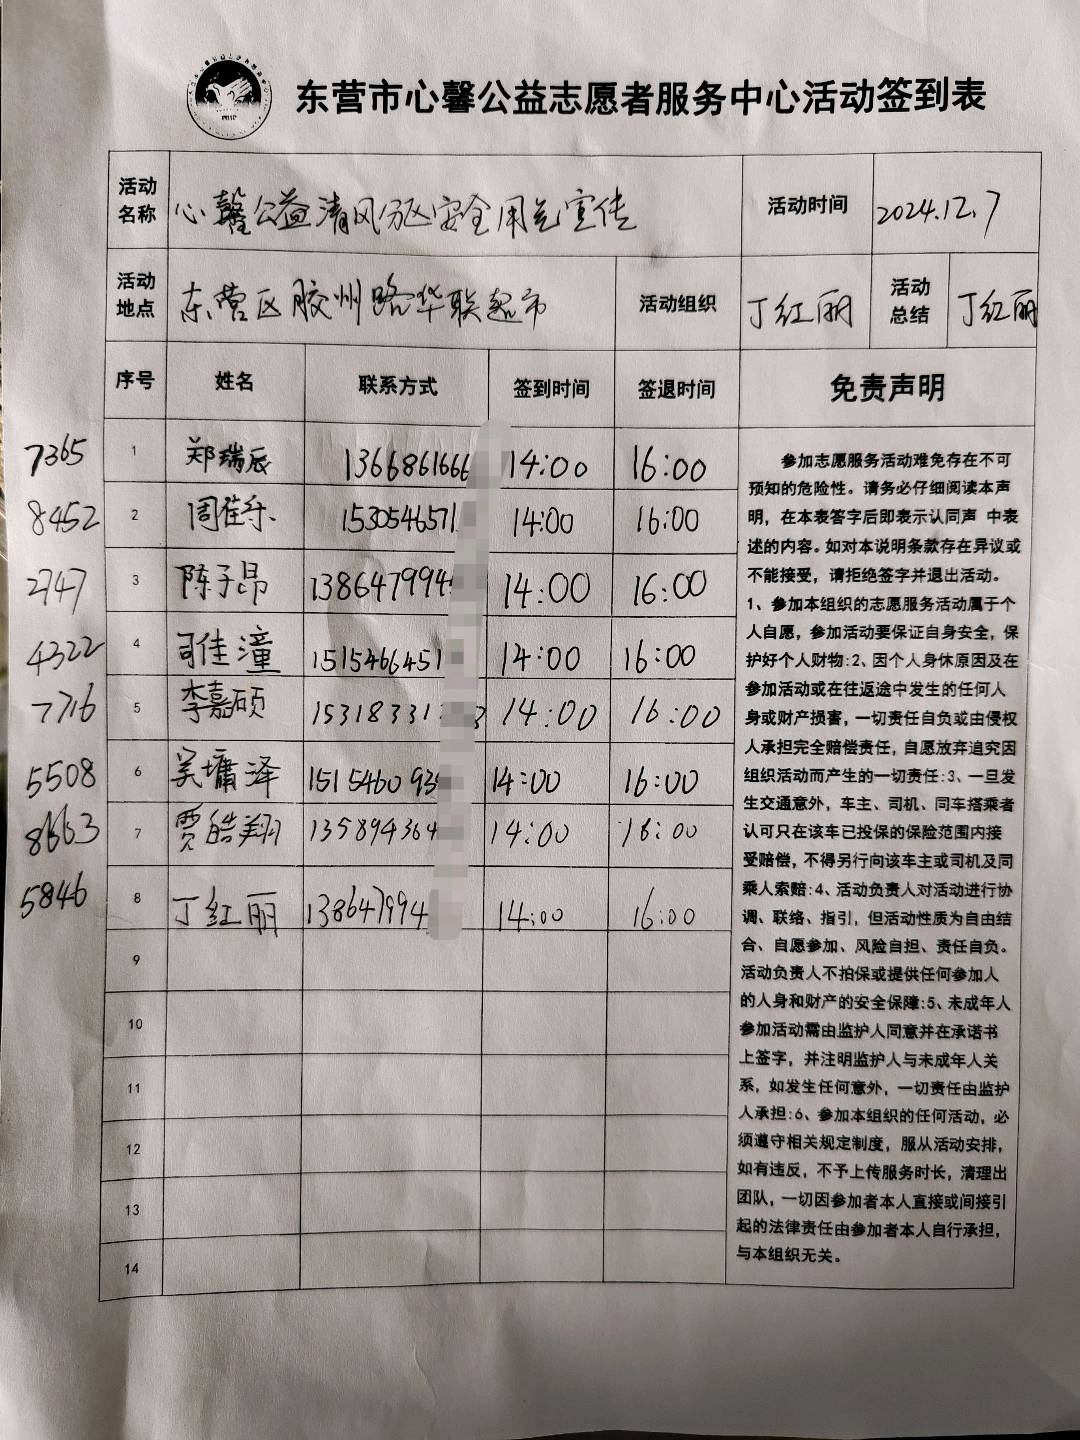 东营市心馨公益志愿者服务中心活动签到表
活动名称 心馨公益清风分队安全用气宣传 活动时间 2024.12.7
活动地点 东营区胶州路华联超市 活动组织 丁红丽 活动总结 丁红丽
序号 姓名 联系方式 签到时间 签退时间 免责声明
7365 1 郑瑞辰 1366861666 14:00 16:00
8452 2 周佳乐 1530546571 14:00 16:00
2747 3 陈子昂 138647994 14:00 16:00
4322 4 司佳潼 1515466451 14:00 16:00
7716 5 李嘉硕 15318331 3 14:00 16:00
5508 6 吴墉泽 151546093 14:00 16:00
8663 7 贾皓翔 135894364 14:00 16:00
5846 8 丁红丽 138647994 14:00 16:00
9
10
11
12
13
14
参加志愿服务活动难免存在不可
预知的危险性。请务必仔细阅读本声
明，在本表答字后即表示认同声 中表
述的内容。如对本说明条款存在异议或
不能接受，请拒绝签字并退出活动。
1、参加本组织的志愿服务活动属于个
人自愿，参加活动要保证自身安全，保
护好个人财物:2、因个人身休原因及在
参加活动或在往返途中发生的任何人
身或财产损害，一切责任自负或由侵权
人承担完全赔偿责任，自愿放弃追究因
组织活动而产生的一切责任:3、一旦发
生交通意外，车主、司机、同车搭乘者
认可只在该车已投保的保险范围内接
受赔偿，不得另行向该车主或司机及同
乘人索赔:4、活动负责人对活动进行协
调、联络、指引，但活动性质为自由结
合、自愿参加、风险自担、责任自负。
活动负责人不拍保或提供任何参加人
的人身和财产的安全保障:5、未成年人
参加活动需由监护人同意并在承诺书
上签字，并注明监护人与未成年人关
系，如发生任何意外，一切责任由监护
人承担:6、参加本组织的任何活动，必
须遵守相关规定制度，服从活动安排，
如有违反，不予上传服务时长，清理出
团队，一切因参加者本人直接或间接引
起的法律责任由参加者本人自行承担，
与本组织无关。